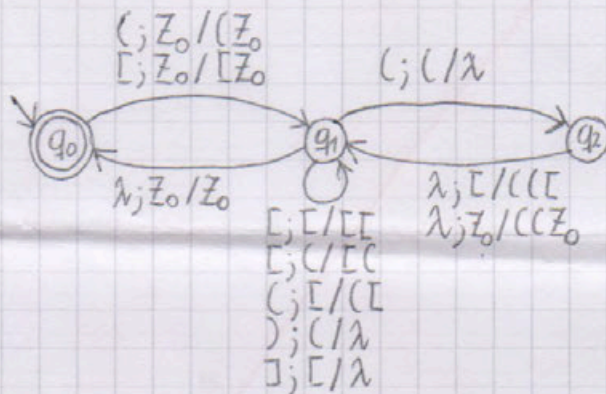 (; Z₀/(Z₀
[; Z₀/[Z₀
(; (/λ
q₀
q₁
q₂
λ; Z₀/Z₀
λ; [/(([
λ; Z₀/((Z₀
[; [/[[
[; (/[(
(; [/([
); (/λ
]; [/λ